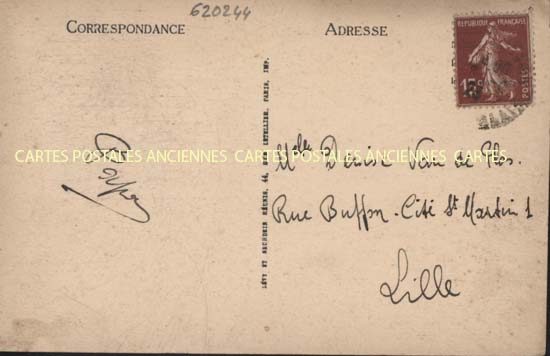 620244
CORRESPONDANCE
ADRESSE
REPUBLIQUE FRANÇAISE
15c
POSTES
CARTES POSTALES ANCIENNES CARTES POSTALES ANCIENNES CARTES
LÉVY ET NEURDEIN RÉUNIS, 44, RUE LETELLIER, PARIS, IMP.
Melle Denise Van de
Rue Buffon - Cité St Martin 1
Lille